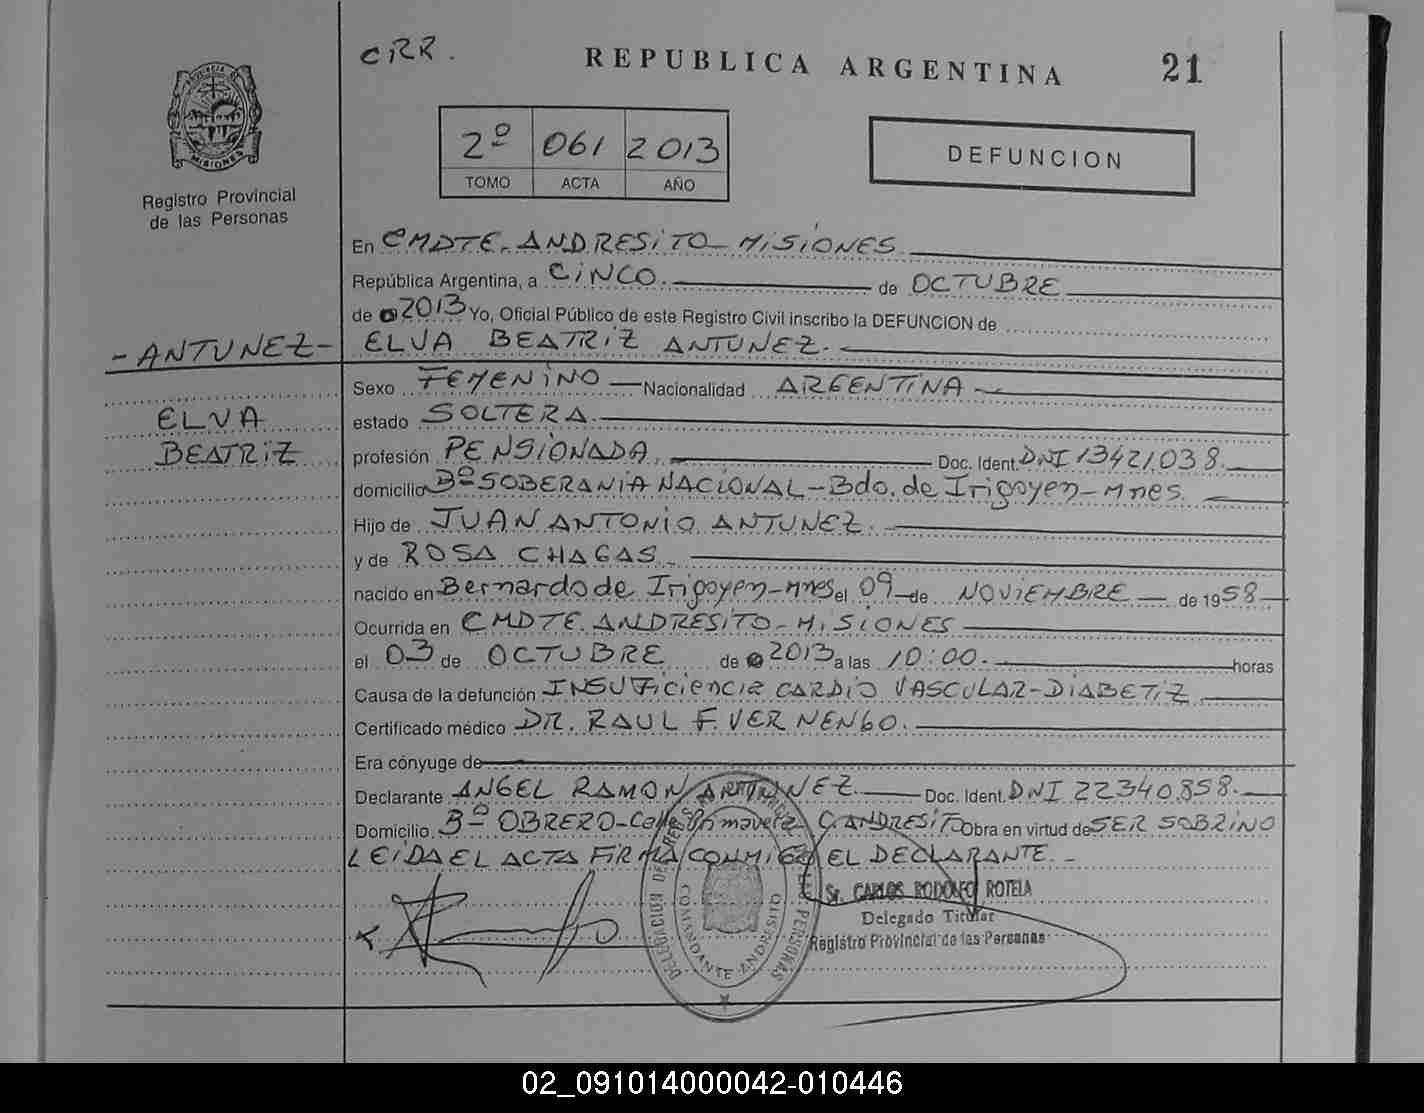 CRR.
REPUBLICA ARGENTINA
21
PROVINCIA DE
MISIONES
Registro Provincial
de las Personas
2º 061 2013
TOMO ACTA AÑO
DEFUNCION
En CMDTE. ANDRESITO - MISIONES
República Argentina, a CINCO. de OCTUBRE
de 2013 Yo, Oficial Público de este Registro Civil inscribo la DEFUNCION de
- ANTUNEZ - ELVA BEATRIZ ANTUNEZ.
Sexo FEMENINO Nacionalidad ARGENTINA
ELVA estado SOLTERA
BEATRIZ profesión PENSIONADA. Doc. Ident. DNI 13421038.
domicilio Bº SOBERANIA NACIONAL - Bdo. de Irigoyen - Mnes.
Hijo de JUAN ANTONIO ANTUNEZ.
y de ROSA CHAGAS.
nacido en Bernardo de Irigoyen - Mnes el 09 de NOVIEMBRE de 1958
Ocurrida en CMDTE. ANDRESITO - MISIONES
el 03 de OCTUBRE de 2013 a las 10:00. horas
Causa de la defunción INSUFiciencia CARDIO VASCULAR - DIABETIZ
Certificado médico DR. RAUL F. VERNENGO.
Era cónyuge de
Declarante ANGEL RAMON ANTUNEZ Doc. Ident. DNI 22340.858.
Domicilio Bº OBRERO - Calle Primavera C. ANDRESITO Obra en virtud de SER SOBRINO
LEIDA EL ACTA FIRMA CONMIGO EL DECLARANTE. -
Sr. CARLOS RODOLFO ROTELA
Delegado Titular
Registro Provincial de las Personas
COMANDANTE ANDRESITO
02_091014000042-010446